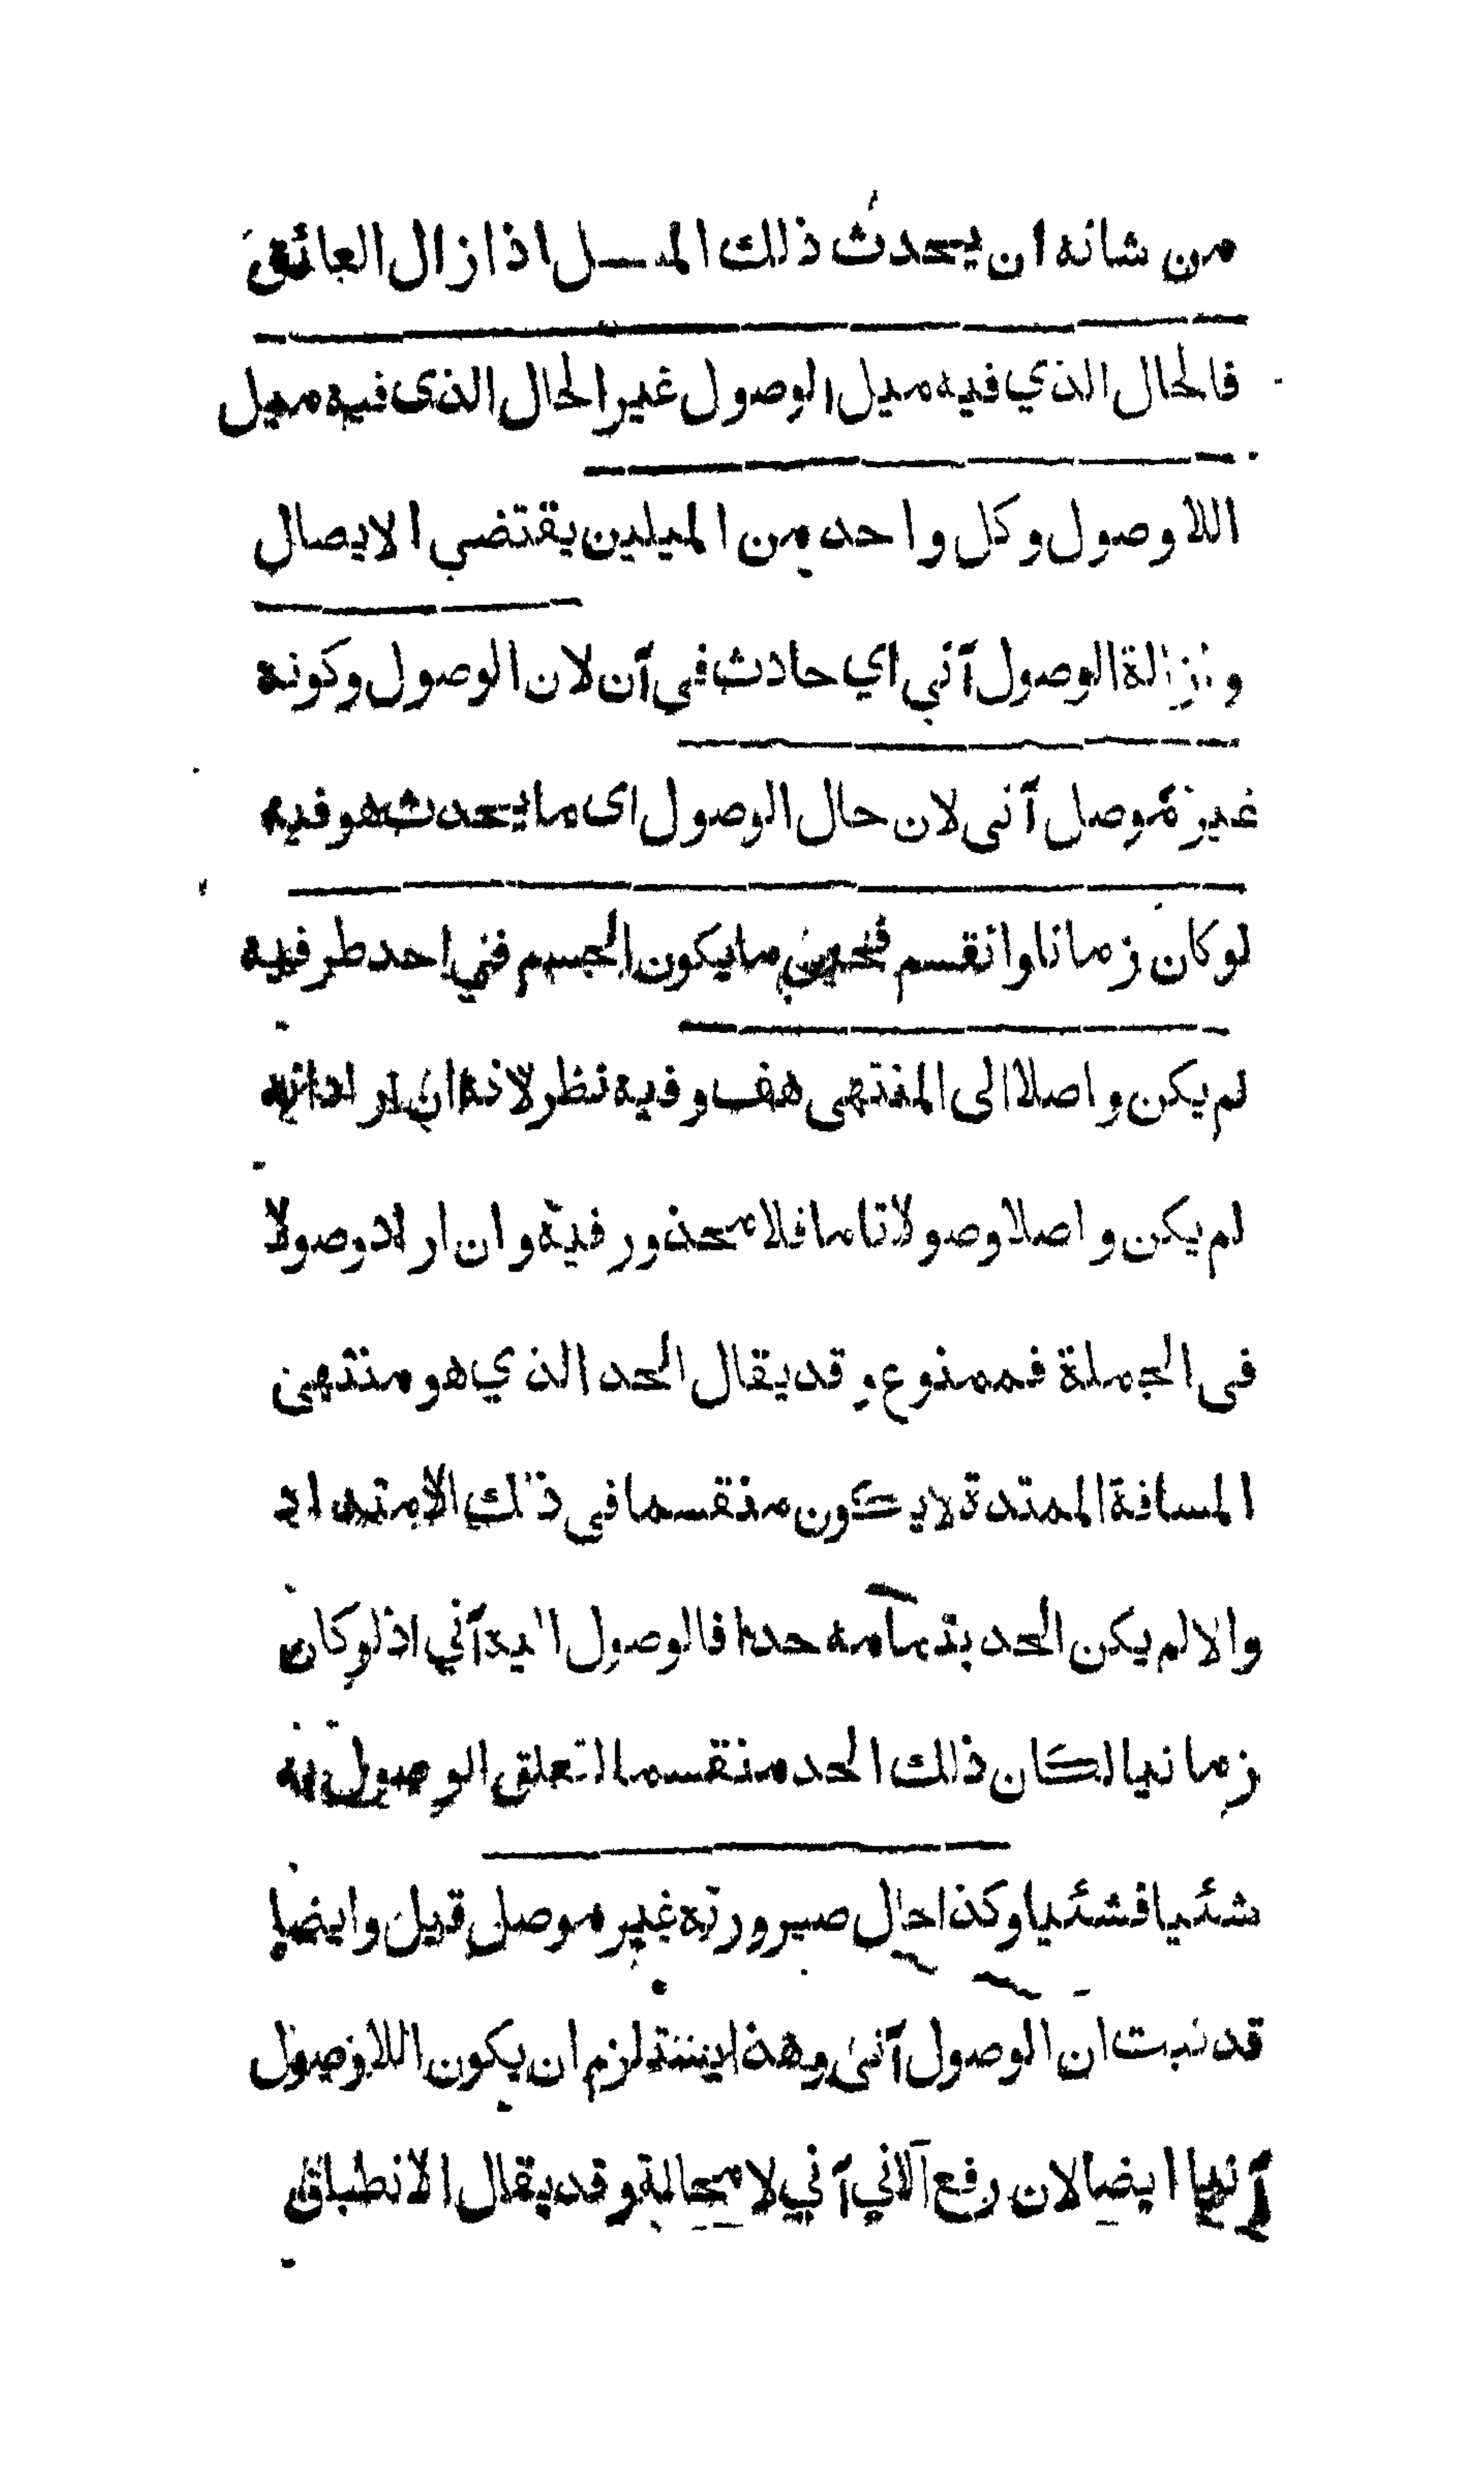 من شانه ان يحدث ذلك الميل اذا زال العائق
فالحال الذي فيه ميل الوصول غير الحال الذى فيه ميل
اللاوصول وكل واحد من الميلين يقتضي الايصال
وازالة الوصول آني اي حادث في آن لان الوصول وكونه
غير موصل آنى لان حال الوصول اى ما يحدث هو فيه
لو كان زمانا وانقسم فحين ما يكون الجسم في احد طرفيه
لم يكن واصلا الى المنتهى هف وفيه نظر لانه ان اراد انه
لم يكن واصلا وصولا تاما فلا محذور فيه وان اراد وصولا
فى الجملة فممنوع وقد يقال الحد الذي هو منتهى
المسافة الممتدة لا يكون منقسما في ذلك الامتداد
والا لم يكن الحد بتمامه حدا فالوصول اليه آني اذ لو كان
زمانيا لكان ذلك الحد منقسما لتعلق الوصول به
شئيا فشئيا وكذا حال صيرورته غير موصل قيل وايضا
قد ثبت ان الوصول آنى وهذا يستلزم ان يكون اللاوصول
آنيا ايضا لان رفع الآني آني لا محالة وقد يقال الانطباق